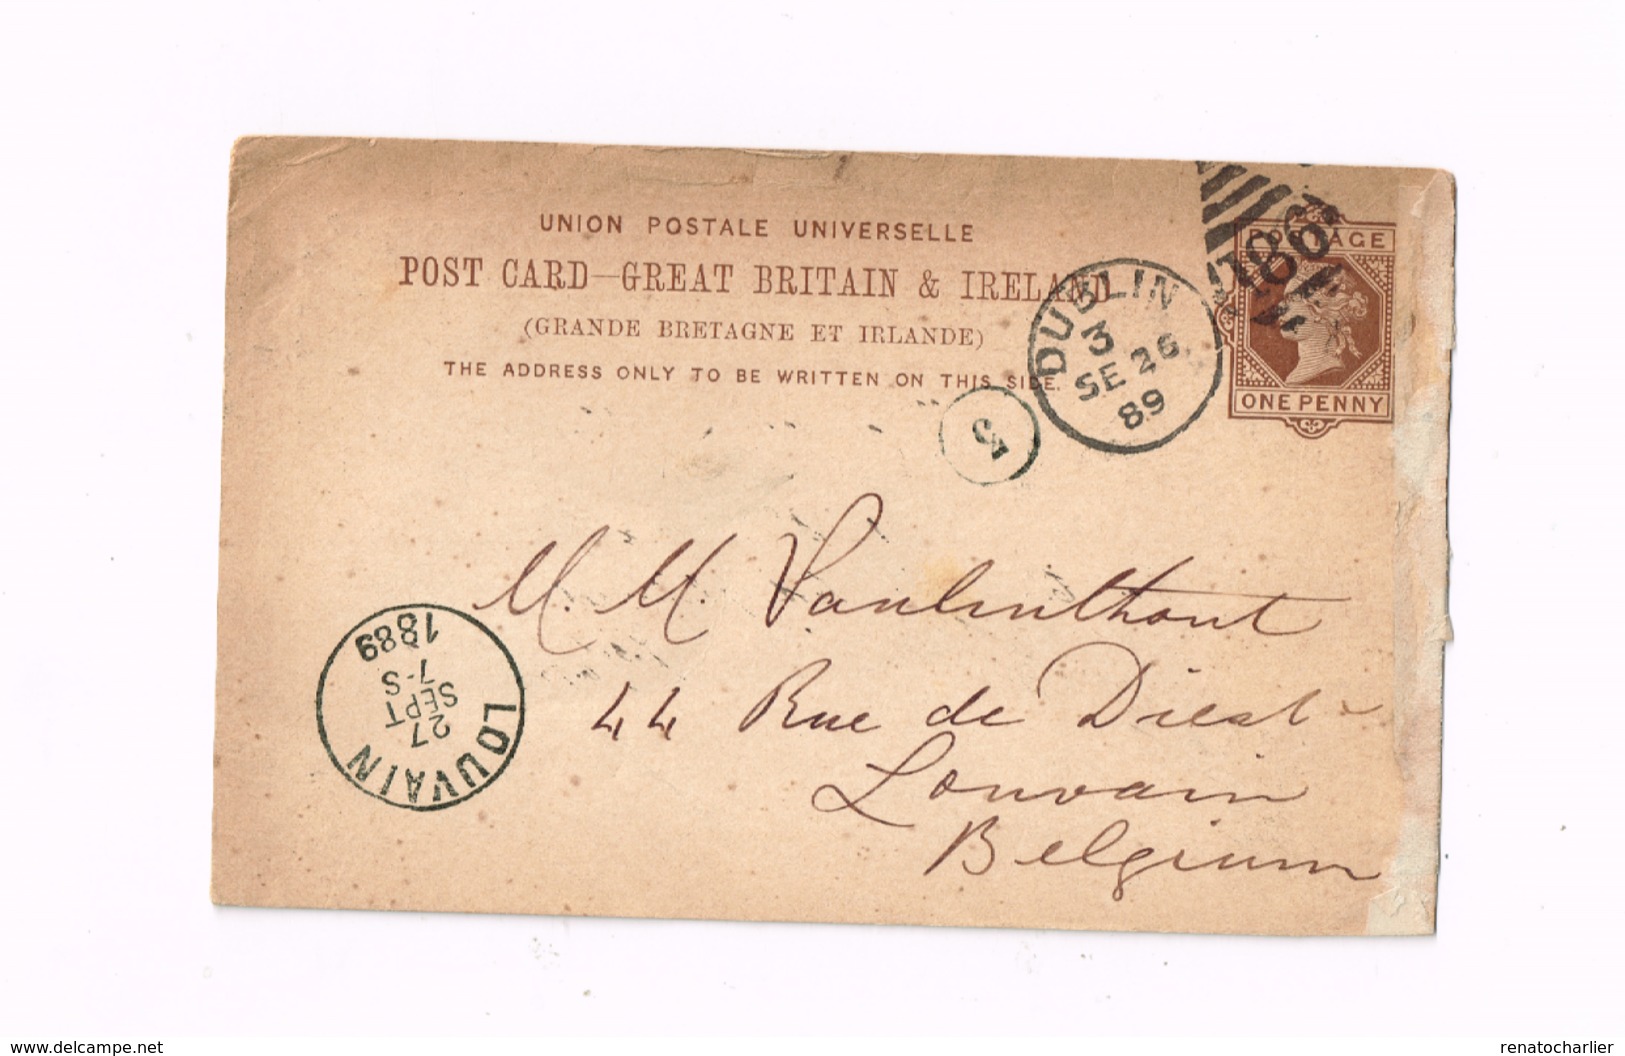 UNION POSTALE UNIVERSELLE
POST CARD—GREAT BRITAIN & IRELAND
(GRANDE BRETAGNE ET IRLANDE)
THE ADDRESS ONLY TO BE WRITTEN ON THIS SIDE.
186
POSTAGE
ONE PENNY
DUBLIN
3
SE 26
89
5
M. M. Vanlinthout
44 Rue de Diest
Louvain
Belgium
LOUVAIN
27
SEPT
7-S
1889
delcampe.net
renatocharlier